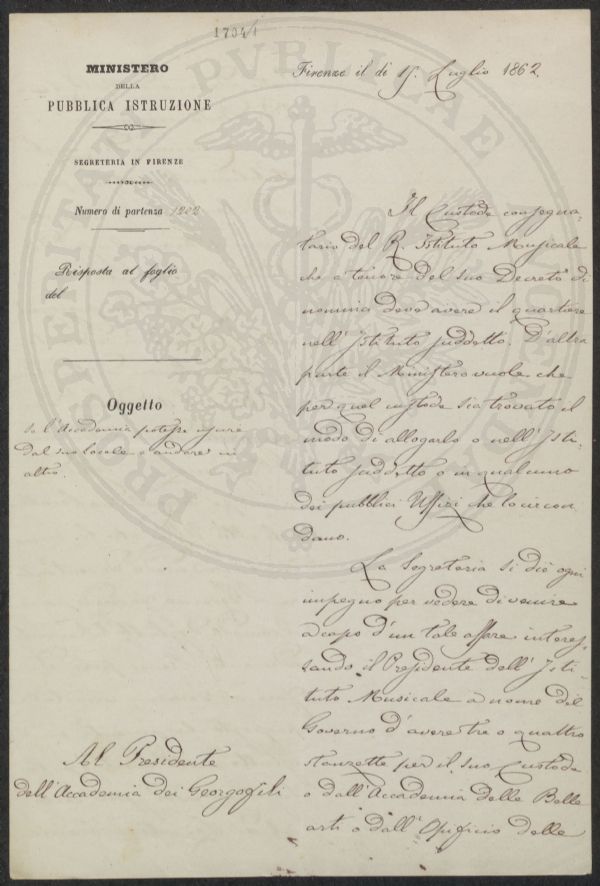 1794/1
MINISTERO
DELLA
PUBBLICA ISTRUZIONE
SEGRETERIA IN FIRENZE
Numero di partenza 1202
Risposta al foglio
del
Oggetto
Se l'Accademia potesse uscire
dal suo locale e andare in
altro.
Al Presidente
dell'Accademia dei Georgofili
Firenze il dì 15. Luglio 1862
Il Custode consegna-
tario del R. Istituto Musicale
che a tenore del suo Decreto di
nomina deve avere il quartiere
nell'Istituto suddetto. D'altra
parte il Ministero vuole che
per quel custode sia trovato il
modo di allogarlo o nell'Isti-
tuto suddetto o in qualcuno
dei pubblici Uffizi che lo circon
dano.
La Segreteria si diè ogni
impegno per vedere di venire
a capo d'un tale affare interes-
sando il Presidente dell'Isti-
tuto Musicale a nome del
Governo d'avere tre o quattro
stanzette per il suo Custode
o dall'Accademia delle Belle
arti o dall'Opificio delle